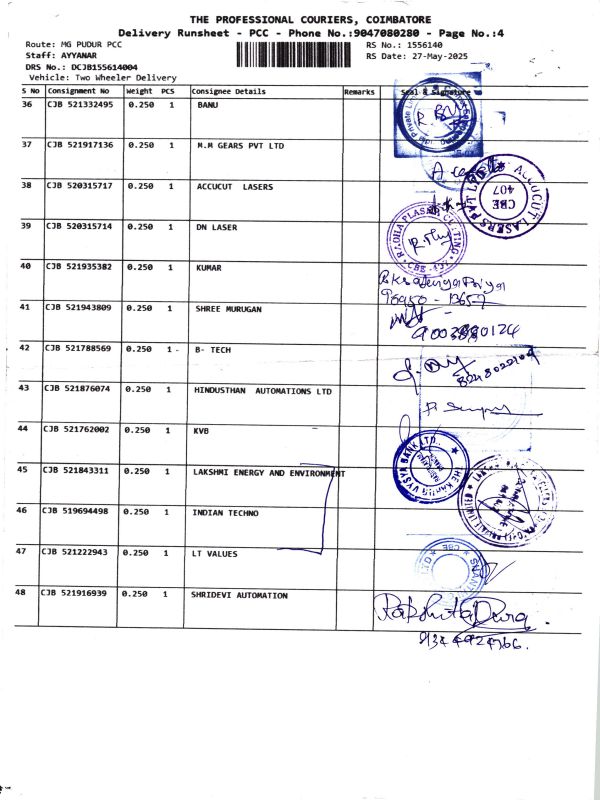 THE PROFESSIONAL COURIERS, COIMBATORE
Delivery Runsheet - PCC - Phone No.:9047080280 - Page No.:4
Route: MG PUDUR PCC RS No.: 1556140
Staff: AYYANAR RS Date: 27-May-2025
DRS No.: DCJB155614004
Vehicle: Two Wheeler Delivery
S No Consignment No Weight PCS Consignee Details Remarks Seal & Signature
36 CJB 521332495 0.250 1 BANU
37 CJB 521917136 0.250 1 M.M GEARS PVT LTD
38 CJB 520315717 0.250 1 ACCUCUT LASERS
ACCUCUT LASERS PVT LTD
CBE
407
39 CJB 520315714 0.250 1 DN LASER
RADHA PLASMA CUTTING
CBE - 407
40 CJB 521935382 0.250 1 KUMAR
41 CJB 521943809 0.250 1 SHREE MURUGAN
9003880124
42 CJB 521788569 0.250 1 - B- TECH
43 CJB 521876074 0.250 1 HINDUSTHAN AUTOMATIONS LTD
44 CJB 521762002 0.250 1 KVB
THE KARUR VYSYA BANK LTD.
45 CJB 521843311 0.250 1 LAKSHMI ENERGY AND ENVIRONMENT
46 CJB 519694498 0.250 1 INDIAN TECHNO
47 CJB 521222943 0.250 1 LT VALUES
CBE
48 CJB 521916939 0.250 1 SHRIDEVI AUTOMATION